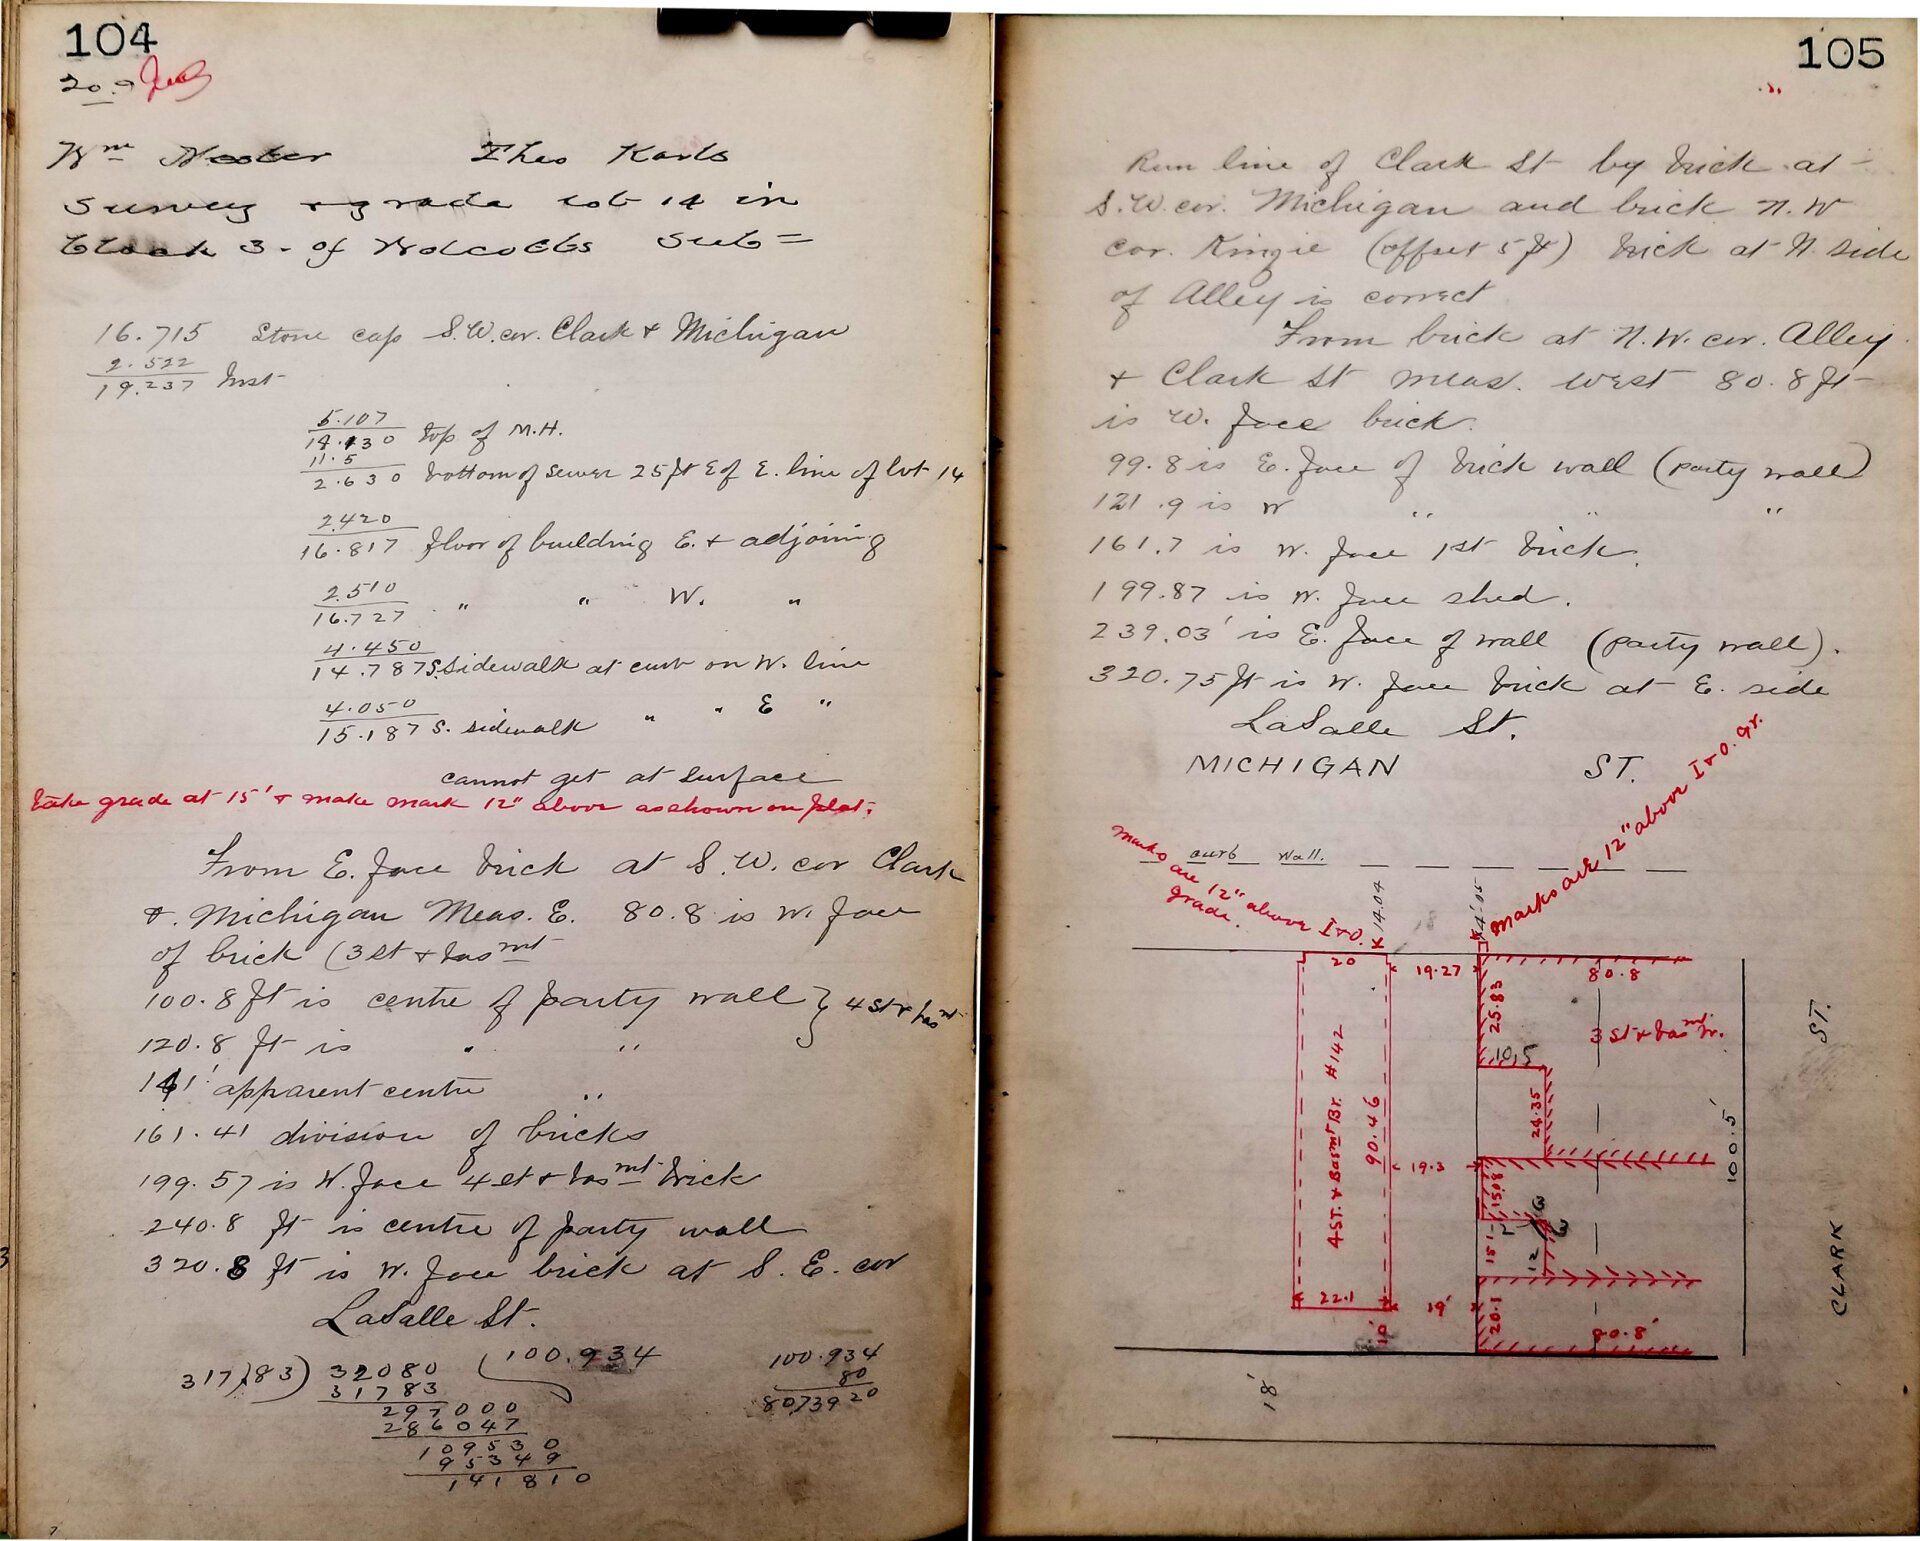 104
Wm Theo Karls
Survey & grade lot 14 in
Block 3 - of Wolcotts Sub=
16.715 Stone cap S.W. cor. Clark & Michigan
2.522
19.237 Inst
5.107
14.130 top of M.H.
11.5
2.630 bottom of sewer 25 ft E of E. line of lot 14
2.420
16.817 floor of building E. & adjoining
2.510
16.727 " " W. "
4.450
14.787 S. sidewalk at curb on W. line
4.050
15.187 S. sidewalk " " E "
cannot get at surface
take grade at 15' & make mark 12" above as shown on plat.
From E. face brick at S.W. cor Clark
& Michigan Meas. E. 80.8 is W. face
of brick (3 st & basmt
100.8 ft is centre of party wall } 4 st & basmt
120.8 ft is " "
141' apparent centre "
161.41 division of bricks
199.57 is W. face 4 st & basmt brick
240.8 ft is centre of party wall
320.8 ft is W. face brick at S.E. cor
LaSalle St.
317.83) 32080 (100.934
31783
297000
286047
109530
95349
141810
100.934
80
8073920
105
Run line of Clark St by brick at
S.W. cor. Michigan and brick N.W
cor. Kinzie (offset 5 ft) brick at N. side
of Alley is correct
From brick at N.W. cor. Alley
& Clark St meas. west 80.8 ft
is W. face brick.
99.8 is E. face of brick wall (party wall)
121.9 is W " " "
161.7 is W. face 1st brick.
199.87 is W. face shed.
239.03' is E. face of wall (party wall).
320.75 ft is W. face brick at E. side
LaSalle St.
MICHIGAN ST.
marks are 12" above I & O. gr.
curb wall.
marks are 12" above I & O.
grade.
14.04
14.05
20
19.27
80.8
25.83
3 st & basmt Br.
10.5
24.35
4 ST. & Basmt Br. #142
90.46
19.3
15.08
15.1
12
100.5'
22.1
19'
20.1
80.8'
10'
18'
CLARK ST.